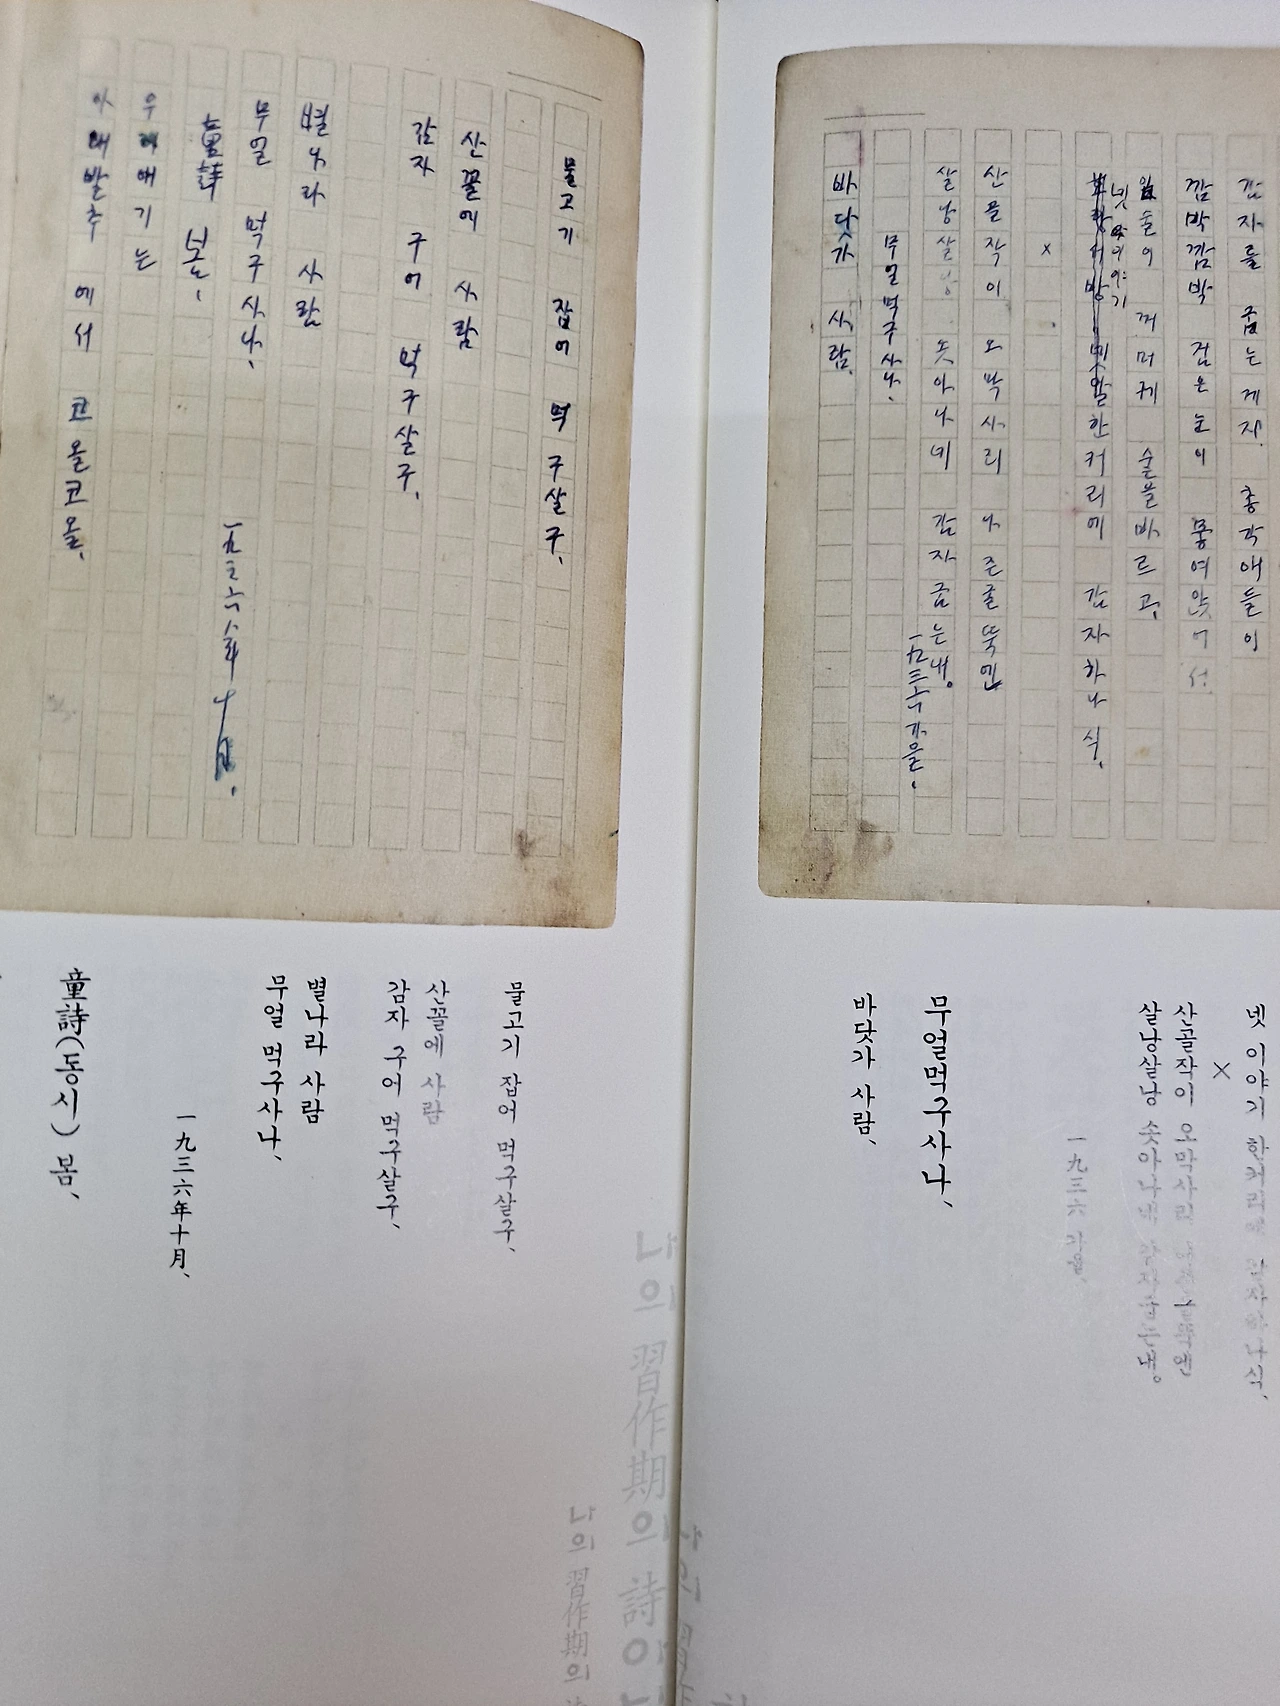 감자를 굽는게지. 총각애들이
깜박깜박 검은눈이 뫃여앉어서
입술이 꺼머케 숯을바르고,
넷이야기
한커리에 감자하나식.
×
산골작이 오막사리 나즌굴뚝엔
살낭살낭 솟아나네 감자굽는내。
一九三六 가을.
무얼먹구사나.
바닷가 사람.
넷 이야기 한커리에 감자하나식、
×
산골작이 오막사리 나즌굴뚝엔
살낭살낭 솟아나네 감자굽는내。
一九三六 가을、
무얼먹구사나、
바닷가 사람、
물고기 잡어 먹구살구、
산꼴에 사람
감자 구어 먹구살구、
별나라 사람
무얼 먹구사나、
一九三六年十月、
童詩 봄、
우리애기는
아래발추 에서 코올코올、
물고기 잡어 먹구살구、
산꼴에 사람
감자 구어 먹구살구、
별나라 사람
무얼 먹구사나、
一九三六年十月、
童詩(동시) 봄、
나의 習作期의 詩아
나의 習作期의